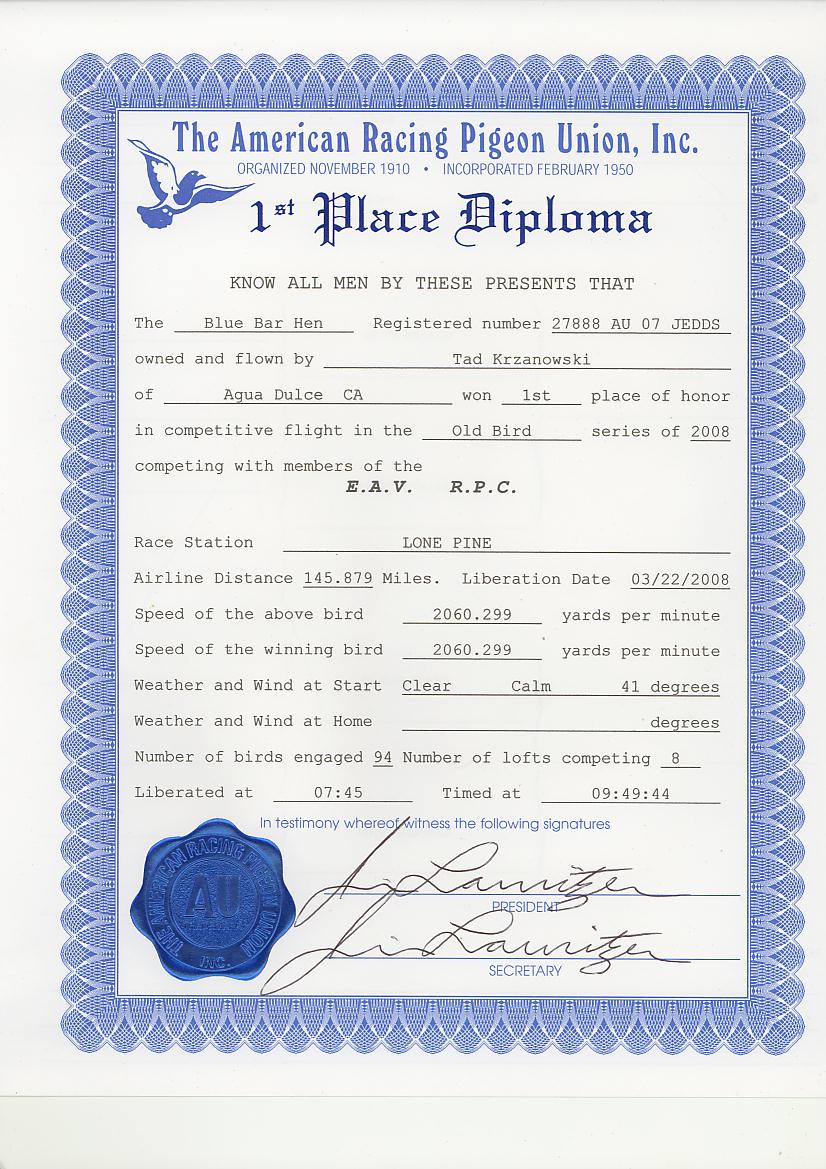 The American Racing Pigeon Union, Inc.
ORGANIZED NOVEMBER 1910 • INCORPORATED FEBRUARY 1950
1st Place Diploma
KNOW ALL MEN BY THESE PRESENTS THAT
The Blue Bar Hen Registered number 27888 AU 07 JEDDS
owned and flown by Tad Krzanowski
of Agua Dulce CA won 1st place of honor
in competitive flight in the Old Bird series of 2008
competing with members of the
E.A.V. R.P.C.
Race Station LONE PINE
Airline Distance 145.879 Miles. Liberation Date 03/22/2008
Speed of the above bird 2060.299 yards per minute
Speed of the winning bird 2060.299 yards per minute
Weather and Wind at Start Clear Calm 41 degrees
Weather and Wind at Home degrees
Number of birds engaged 94 Number of lofts competing 8
Liberated at 07:45 Timed at 09:49:44
In testimony whereof witness the following signatures
Jim Lawitzer
PRESIDENT
Jim Lawitzer
SECRETARY
THE AMERICAN RACING PIGEON UNION
AU
INC.